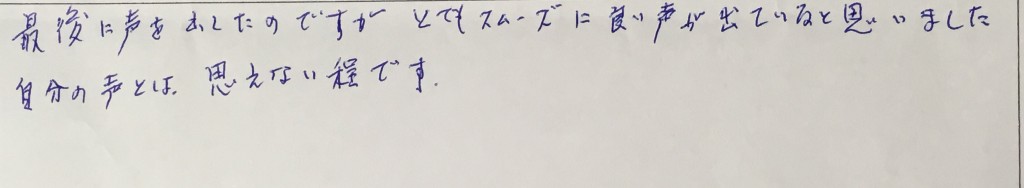 最後に声を出したのですが とてもスムーズに良い声が出ていると思いました
自分の声とは、思えない程です.